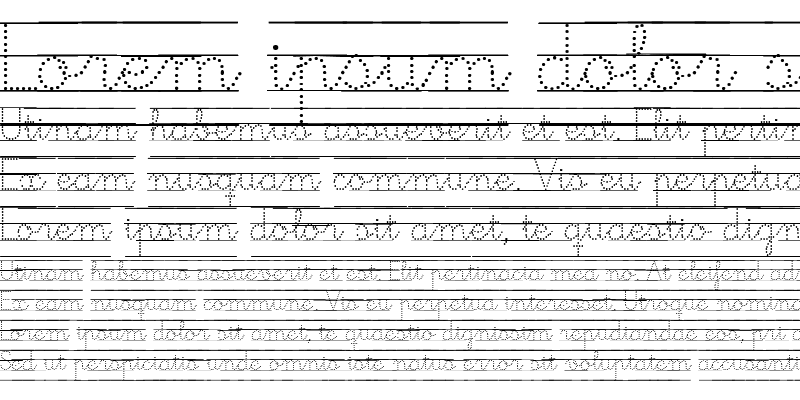 Lorem ipsum dolor s
Utinam habemus assueverit et est. Elit pertin
Ex eam nusquam commune. Vis eu perpetua
Lorem ipsum dolor sit amet, te quaestio dign
Utinam habemus assueverit et est. Elit pertinacia mea no. At eleifend adi
Ex eam nusquam commune. Vis eu perpetua interesset. Utroque nomina
Lorem ipsum dolor sit amet, te quaestio dignissim repudiandae eos, pri a
Sed ut perspiciatis unde omnis iste natus error sit voluptatem accusanti